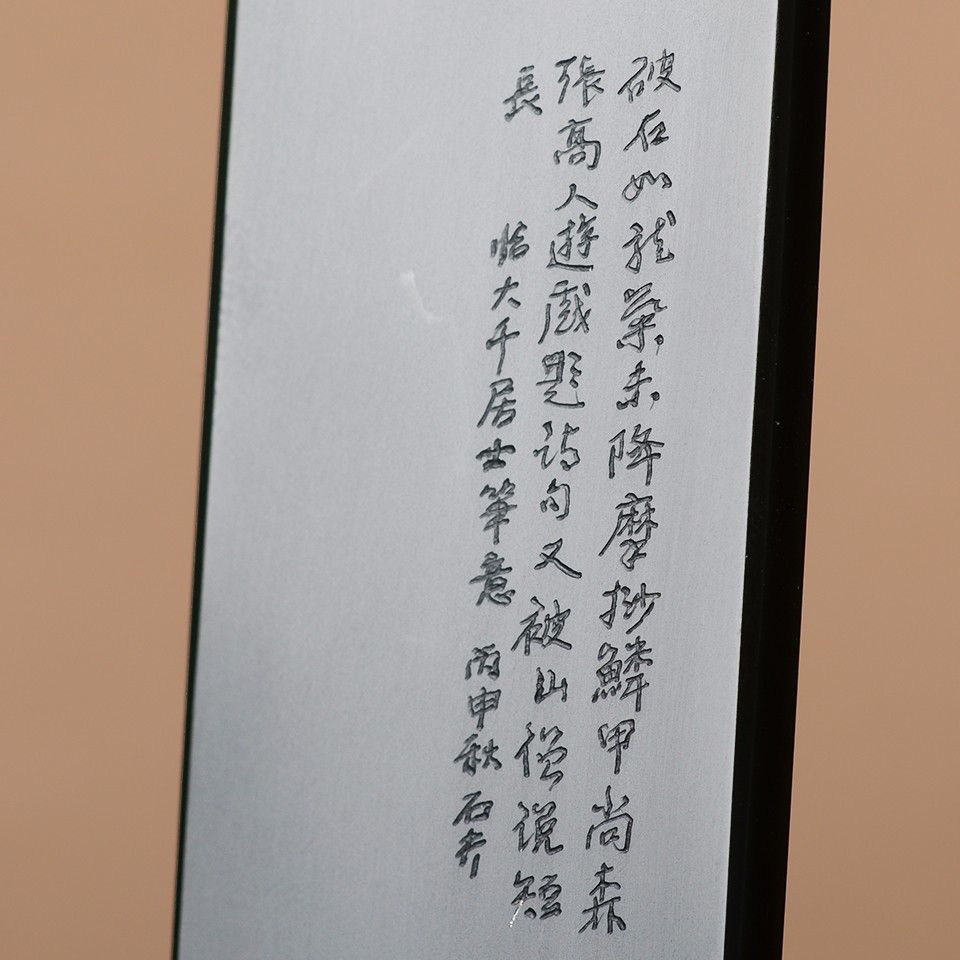 破在如龙桀未降摩挱鱗甲尚森
張高人遊戲題诗句又被山僧说短
長
臨大千居士筆意 丙申秋石卉